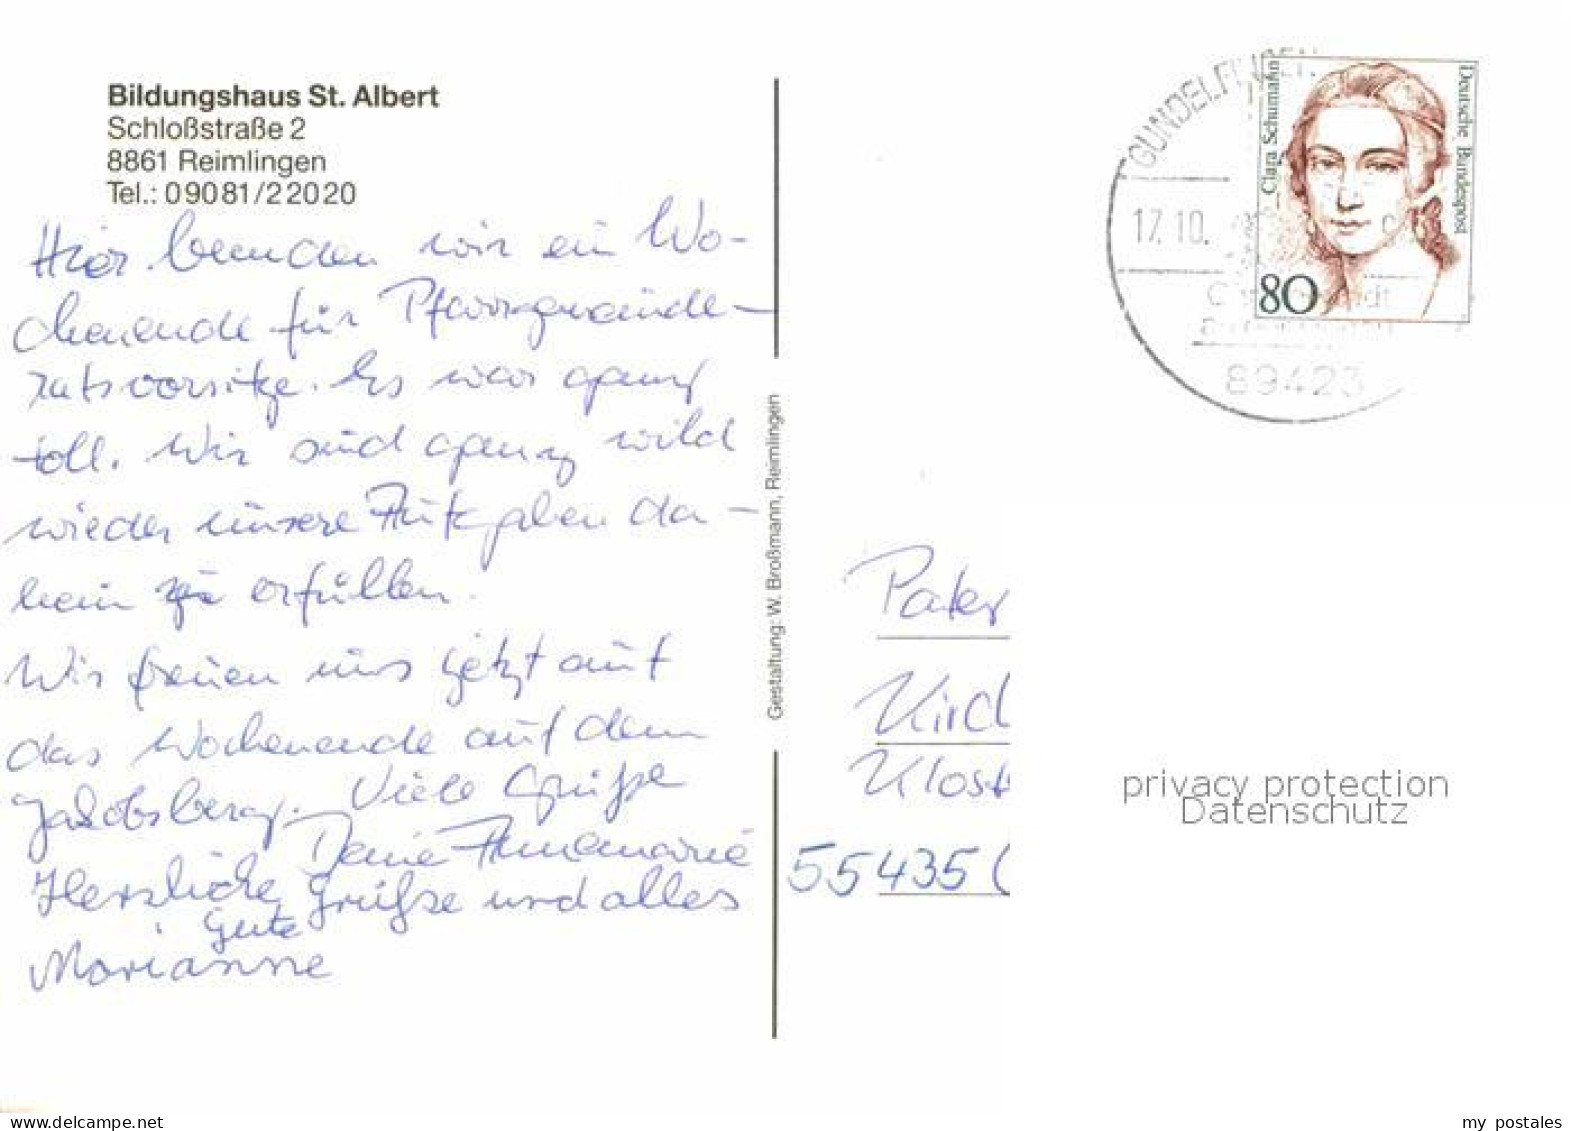 Bildungshaus St. Albert
Schloßstraße 2
8861 Reimlingen
Tel.: 09081/22020
Hier beenden wir ein Wo-
chenende für Pfarrgemeinde-
ratsvorsitze. Es war ganz
toll. Wir sind ganz wild
wieder unsere Aufgaben da-
heim zu erfüllen.
Wir freuen uns jetzt auf
das Wochenende auf dem
Jakobsberg. Viele Grüße
Deine Annemarie
Herzliche Grüße und alles
Gute
Marianne
Gestaltung: W. Broßmann, Reimlingen
GUNDELFINGEN
17.10.
89423
Clara Schumann
Deutsche Bundespost
80
Pater
Kirch
Klost
55435
privacy protection
Datenschutz
www.delcampe.net
my_postales